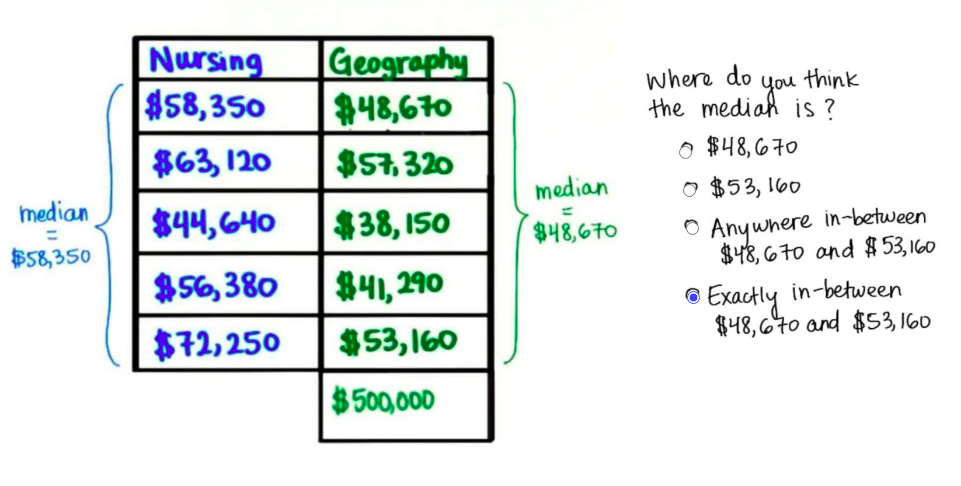 Nursing Geography
$58,350 $48,670
$63,120 $57,320
$44,640 $38,150
$56,380 $41,290
$72,250 $53,160
$500,000
median
=
$58,350
median
=
$48,670
Where do you think
the median is?
$48,670
$53,160
Anywhere in-between
$48,670 and $53,160
Exactly in-between
$48,670 and $53,160